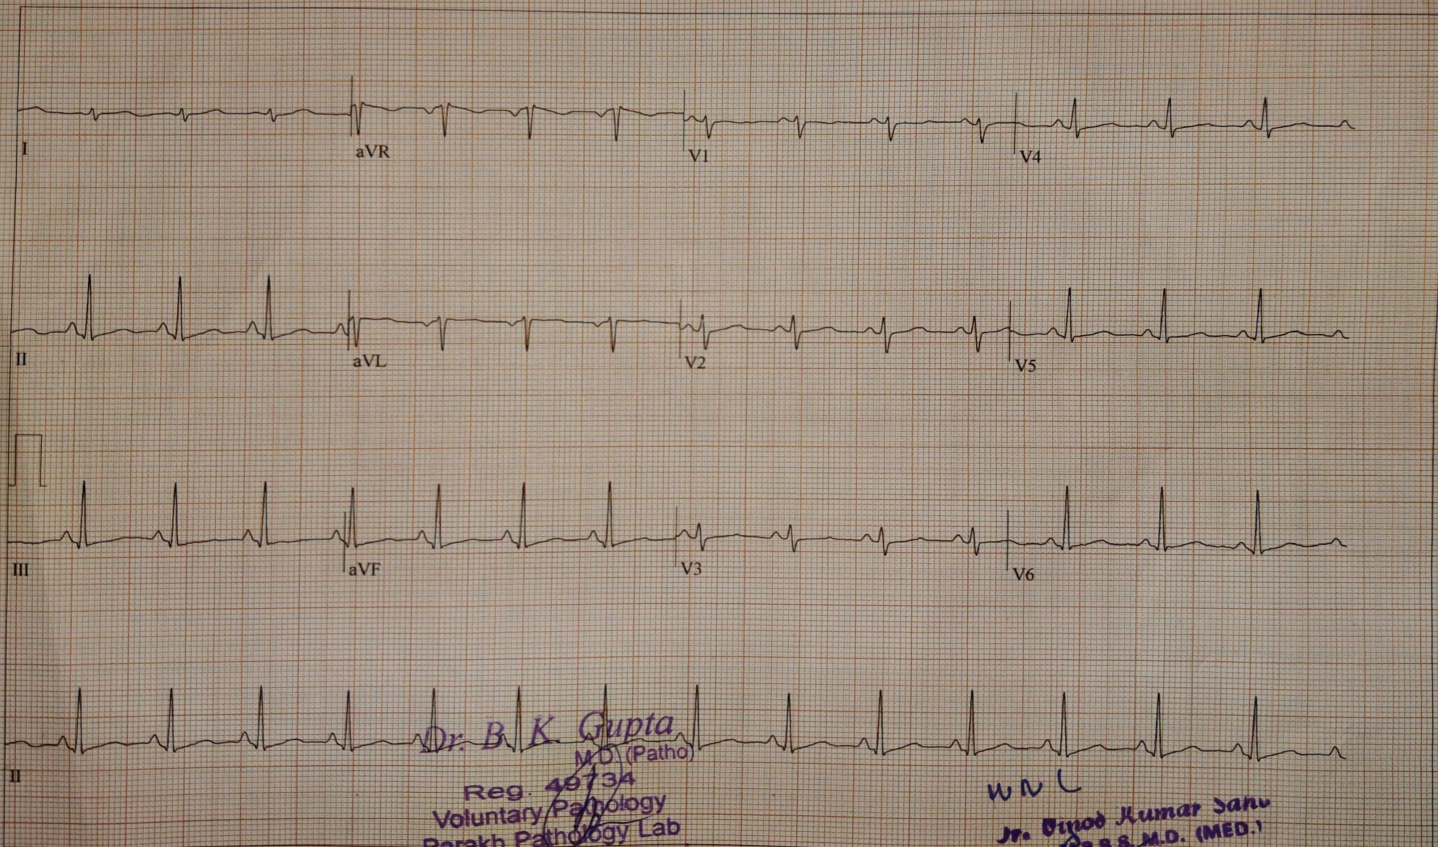 I
aVR
V1
V4
II
aVL
V2
V5
III
aVF
V3
V6
II
Dr. B. K. Gupta
M.D. (Patho)
Reg. 49734
Voluntary Pathology
Parakh Pathology Lab
WNL
Dr. Vinod Kumar Sahu
M.D. (MED.)